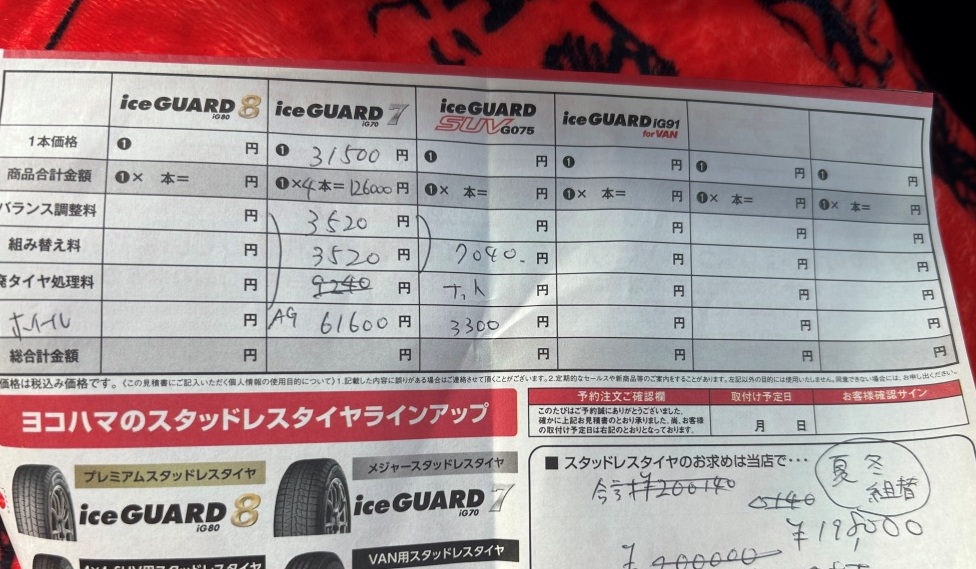 iceGUARD 8 iG80 iceGUARD 7 iG70 iceGUARD SUV G075 iceGUARD iG91 for VAN
1本価格 ❶ 円 ❶ 31500 円 ❶ 円 ❶ 円 ❶ 円 ❶ 円
商品合計金額 ❶× 本= 円 ❶×4本=126000円 ❶× 本= 円 ❶× 本= 円 ❶× 本= 円 ❶× 本= 円
バランス調整料 円 3520 円 円 円 円 円
組み替え料 円 3520 円 7040. 円 円 円 円
廃タイヤ処理料 円 9240 円 ナット 円 円 円 円
ホイール 円 AG 61600 円 3300 円 円 円 円
総合計金額 円 円 円 円 円 円
価格は税込み価格です。《この見積書にご記入いただく個人情報の使用目的について》1.記載した内容に誤りがある場合はご連絡させて頂くことがございます。2.定期的なセールスや新商品等のご案内をすることがあります。左記以外の目的には使用いたしません。同意できない場合には、お申し出ください。
ヨコハマのスタッドレスタイヤラインアップ
プレミアムスタッドレスタイヤ
iceGUARD 8 iG80
メジャースタッドレスタイヤ
iceGUARD 7 iG70
VAN用スタッドレスタイヤ
予約注文ご確認欄 取付け予定日 お客様確認サイン
このたびはご予約誠にありがとうございました。
確かに上記お見積書のとおり承りました。尚、お客様
の取付け予定日は右記のとおりとなっております。
月 日
■ スタッドレスタイヤのお求めは当店で・・・
夏 冬
組替
¥200140
5140
¥198,000
¥200000